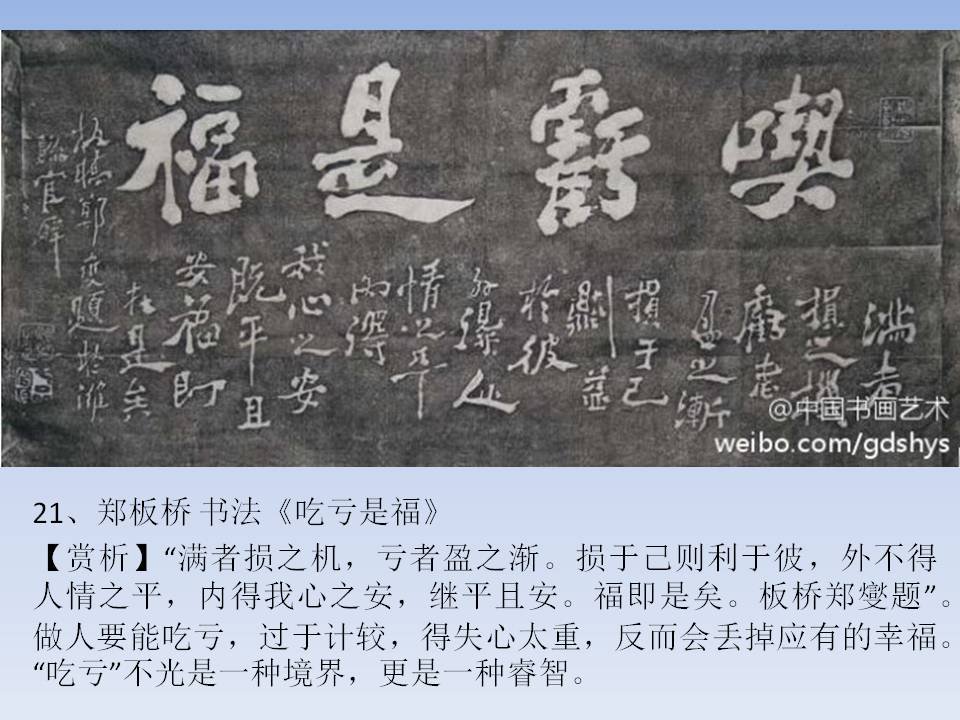 喫虧是福
滿者
損之機
虧者
盈之漸
損于己
則益
於彼
外得人
情之平
內得
我心之安
既平且
安福即
在是矣
板橋鄭燮題於濰
縣官廨
@中国书画艺术
weibo.com/gdshys
21、郑板桥 书法《吃亏是福》
【赏析】“满者损之机，亏者盈之渐。损于己则利于彼，外不得
人情之平，内得我心之安，继平且安。福即是矣。板桥郑燮题”。
做人要能吃亏，过于计较，得失心太重，反而会丢掉应有的幸福。
“吃亏”不光是一种境界，更是一种睿智。